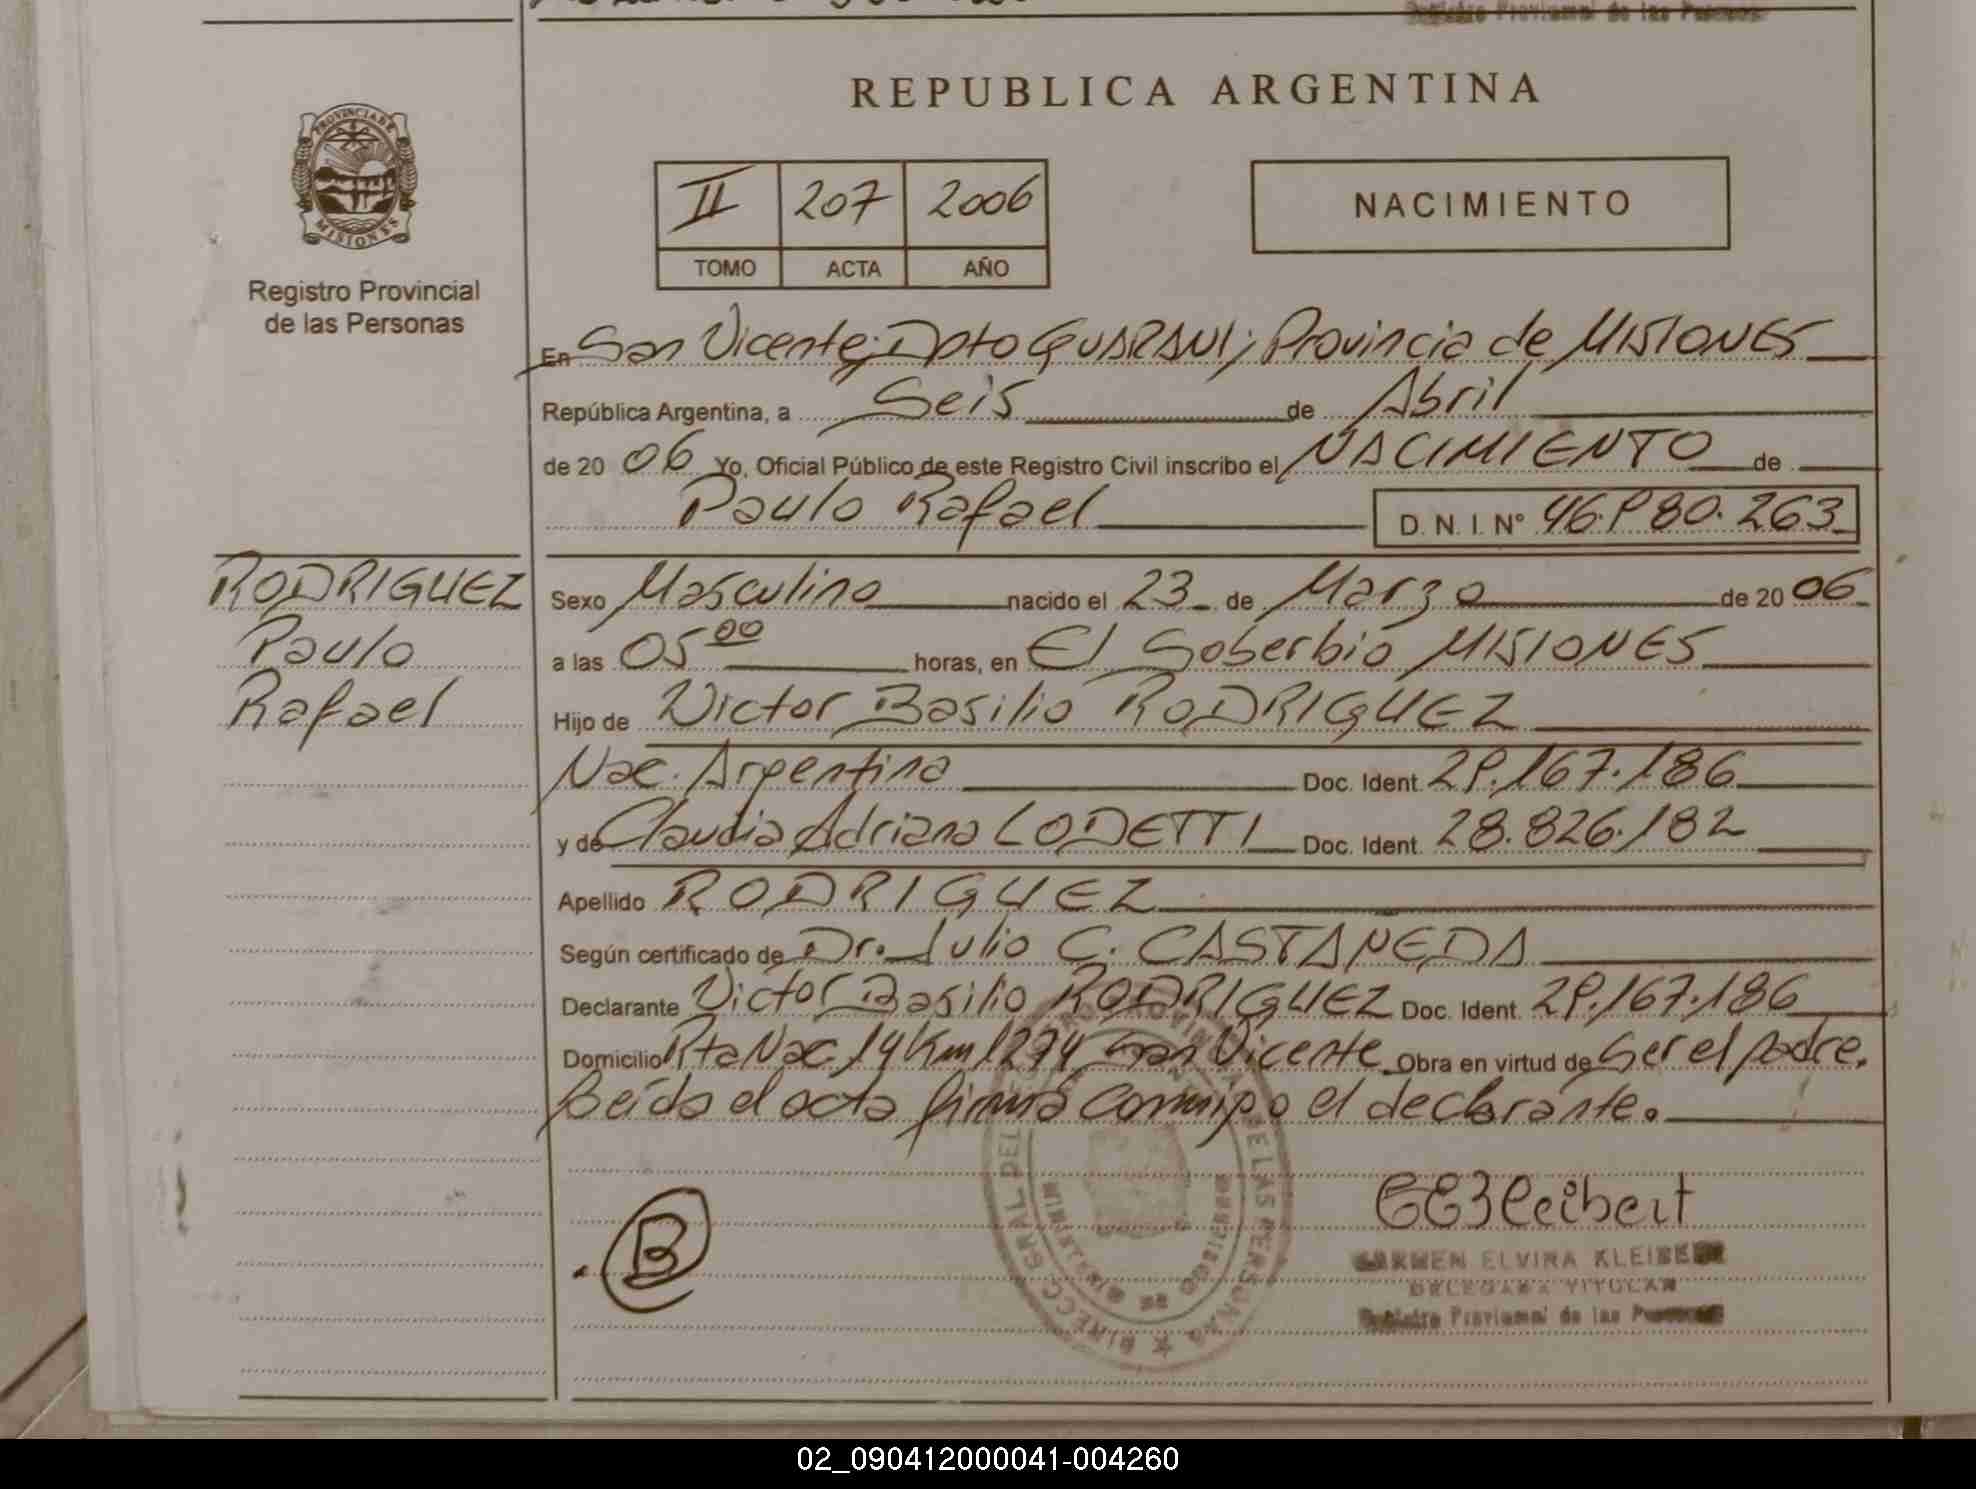 REPUBLICA ARGENTINA
PROVINCIA DE
MISIONES
Registro Provincial
de las Personas
II 207 2006
TOMO ACTA AÑO
NACIMIENTO
En San Vicente; Dpto GUARANI; Provincia de MISIONES
República Argentina, a Seis de Abril
de 20 06 Yo, Oficial Público de este Registro Civil inscribo el NACIMIENTO de
Paulo Rafael D. N. I. N° 46.980.263
RODRIGUEZ
Paulo
Rafael
Sexo Masculino nacido el 23 de Marzo de 20 06
a las 05 00 horas, en El Soberbio MISIONES
Hijo de Victor Basilio RODRIGUEZ
Nac. Argentina Doc. Ident. 29.167.186
y de Claudia Adriana LODETTI Doc. Ident. 28.826.182
Apellido RODRIGUEZ
Según certificado de Dr. Julio C. CASTANEDA
Declarante Victor Basilio RODRIGUEZ Doc. Ident. 29.167.186
Domicilio Rta Nac 14 Km 1274 San Vicente Obra en virtud de Ser el padre.
Leída el acta firma conmigo el declarante.
B
CARMEN ELVIRA KLEIBERT
DELEGADA TITULAR
Registro Provincial de las Personas
02_090412000041-004260